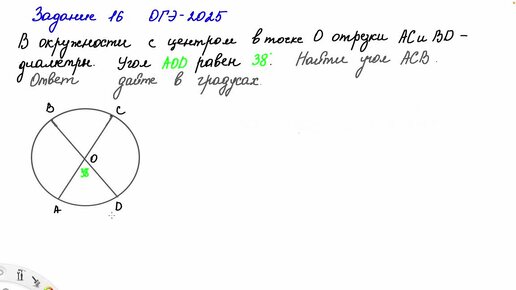 Задание 16 ОГЭ-2025
В окружности с центром в точке О отрезки АС и BD -
диаметры. Угол AOD равен 38°. Найти угол ACB.
Ответ дайте в градусах.
B
C
O
38
A
D